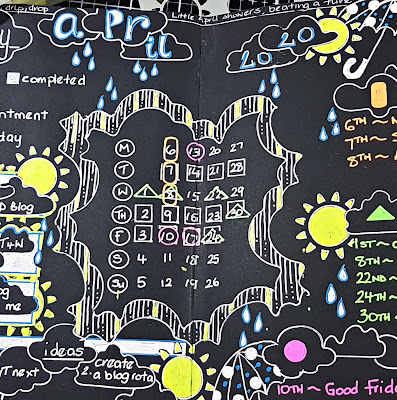 drip, drop
Little April showers, beating a tune
April
2020
completed
ntment
day
M 6 13 20 27
T 7 14 21 28
W 1 8 15 22 29
Th 2 9 16 23 30
F 3 10 17 24
S 4 11 18 25
Su 5 12 19 26
6TH ~
7TH ~ S
8TH ~
Blog
T4W
og
me
1ST ~
8TH ~
22ND ~
24TH ~
30TH ~
ideas
create
2. a blog rota
T next
10TH ~ Good Frida